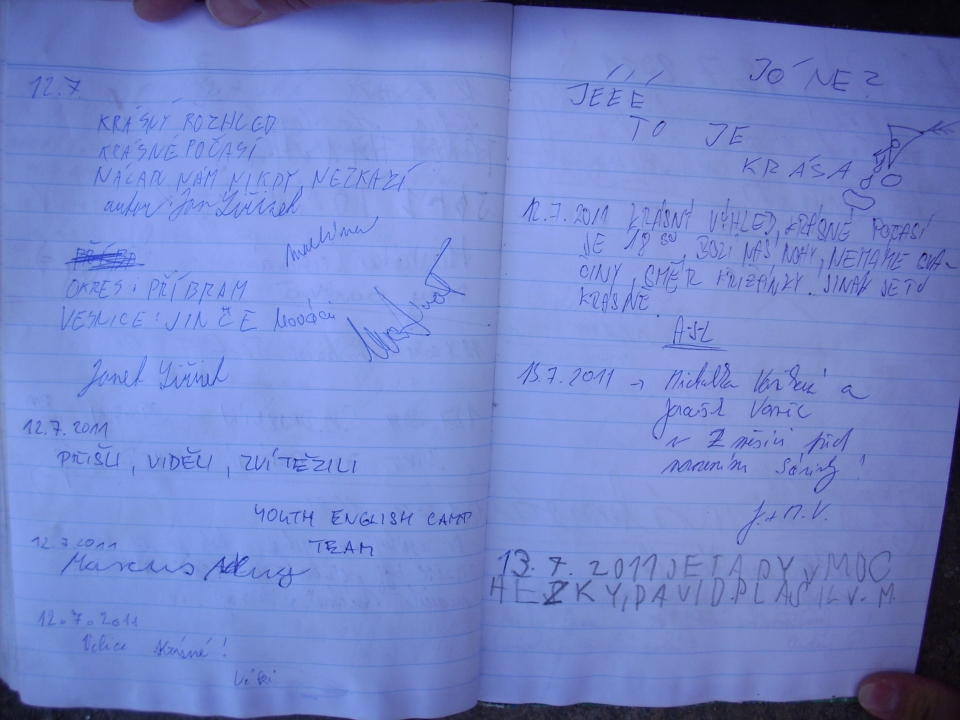 12.7.
KRÁSNÝ ROZHLED
KRÁSNÉ POČASÍ
NÁLADU NÁM NIKDY NEZKAZÍ
autor: Jan
OKRES: PŘÍBRAM
VESNICE: JINCE
Janek
12.7.2011
PŘIŠLI, VIDĚLI, ZVÍTĚZILI
YOUTH ENGLISH CAMP
TEAM
12.7.2011
Marcus
12.7.2011
Velice krásné!
JÓ NE?
JÉÉÉ
TO JE
KRÁSA
12.7.2011 KRÁSNÝ VÝHLED, KRÁSNÉ POČASÍ
JE 18 BOLÍ NÁS NOHY, NEMÁME SVA-
ČINY, SMĚR KŘIŽÁNKY. JINAK JE TO
KRÁSNÉ.
A-S-L
13.7.2011 → a
v 7 měsíci před
narozením
J.+M.V.
13.7.2011 JE TADY MOC
HEZKY, DAVID PLAŠIL V.M.